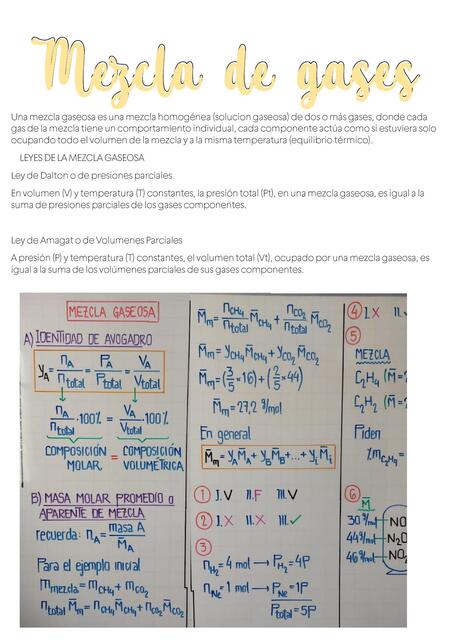 Mezcla de gases
Una mezcla gaseosa es una mezcla homogénea (solucion gaseosa) de dos o más gases, donde cada
gas de la mezcla tiene un comportamiento individual, cada componente actúa como si estuviera solo
ocupando todo el volumen de la mezcla y a la misma temperatura (equilibrio térmico).
LEYES DE LA MEZCLA GASEOSA
Ley de Dalton o de presiones parciales
En volumen (V) y temperatura (T) constantes, la presión total (Pt), en una mezcla gaseosa, es igual a la
suma de presiones parciales de los gases componentes.
Ley de Amagat o de Volumenes Parciales
A presión (P) y temperatura (T) constantes, el volumen total (Vt), ocupado por una mezcla gaseosa, es
igual a la suma de los volúmenes parciales de sus gases componentes.
MEZCLA GASEOSA
A) IDENTIDAD DE AVOGADRO
y_A = n_A/n_total = P_A/P_total = V_A/V_total
n_A/n_total · 100% = V_A/V_total · 100%
COMPOSICIÓN MOLAR = COMPOSICIÓN VOLUMÉTRICA
B) MASA MOLAR PROMEDIO o
APARENTE DE MEZCLA
recuerda: n_A = masa A/M̄_A
Para el ejemplo inicial
m_mezcla = m_CH4 + m_CO2
n_total M̄m = n_CH4 M̄_CH4 + n_CO2 M̄_CO2
M̄m = n_CH4/n_total M̄_CH4 + n_CO2/n_total M̄_CO2
M̄m = y_CH4 M̄_CH4 + y_CO2 M̄_CO2
M̄m = (3/5 × 16) + (2/5 × 44)
M̄m = 27,2 g/mol
En general
M̄m = y_A M̄_A + y_B M̄_B + ... + y_i M̄_i
1 I. V II. F III. V
2 I. X II. X III. ✓
3
n_H2 = 4 mol → P_H2 = 4P
n_Ne = 1 mol → P_Ne = 1P
P_total = 5P
4 I. X II.
5
MEZCLA
C2H4 (M̄ =
C2H2 (M̄ =
Piden
%m_C2H4 =
6
M̄
30 g/mol NO
44 g/mol N2O
46 g/mol NO2